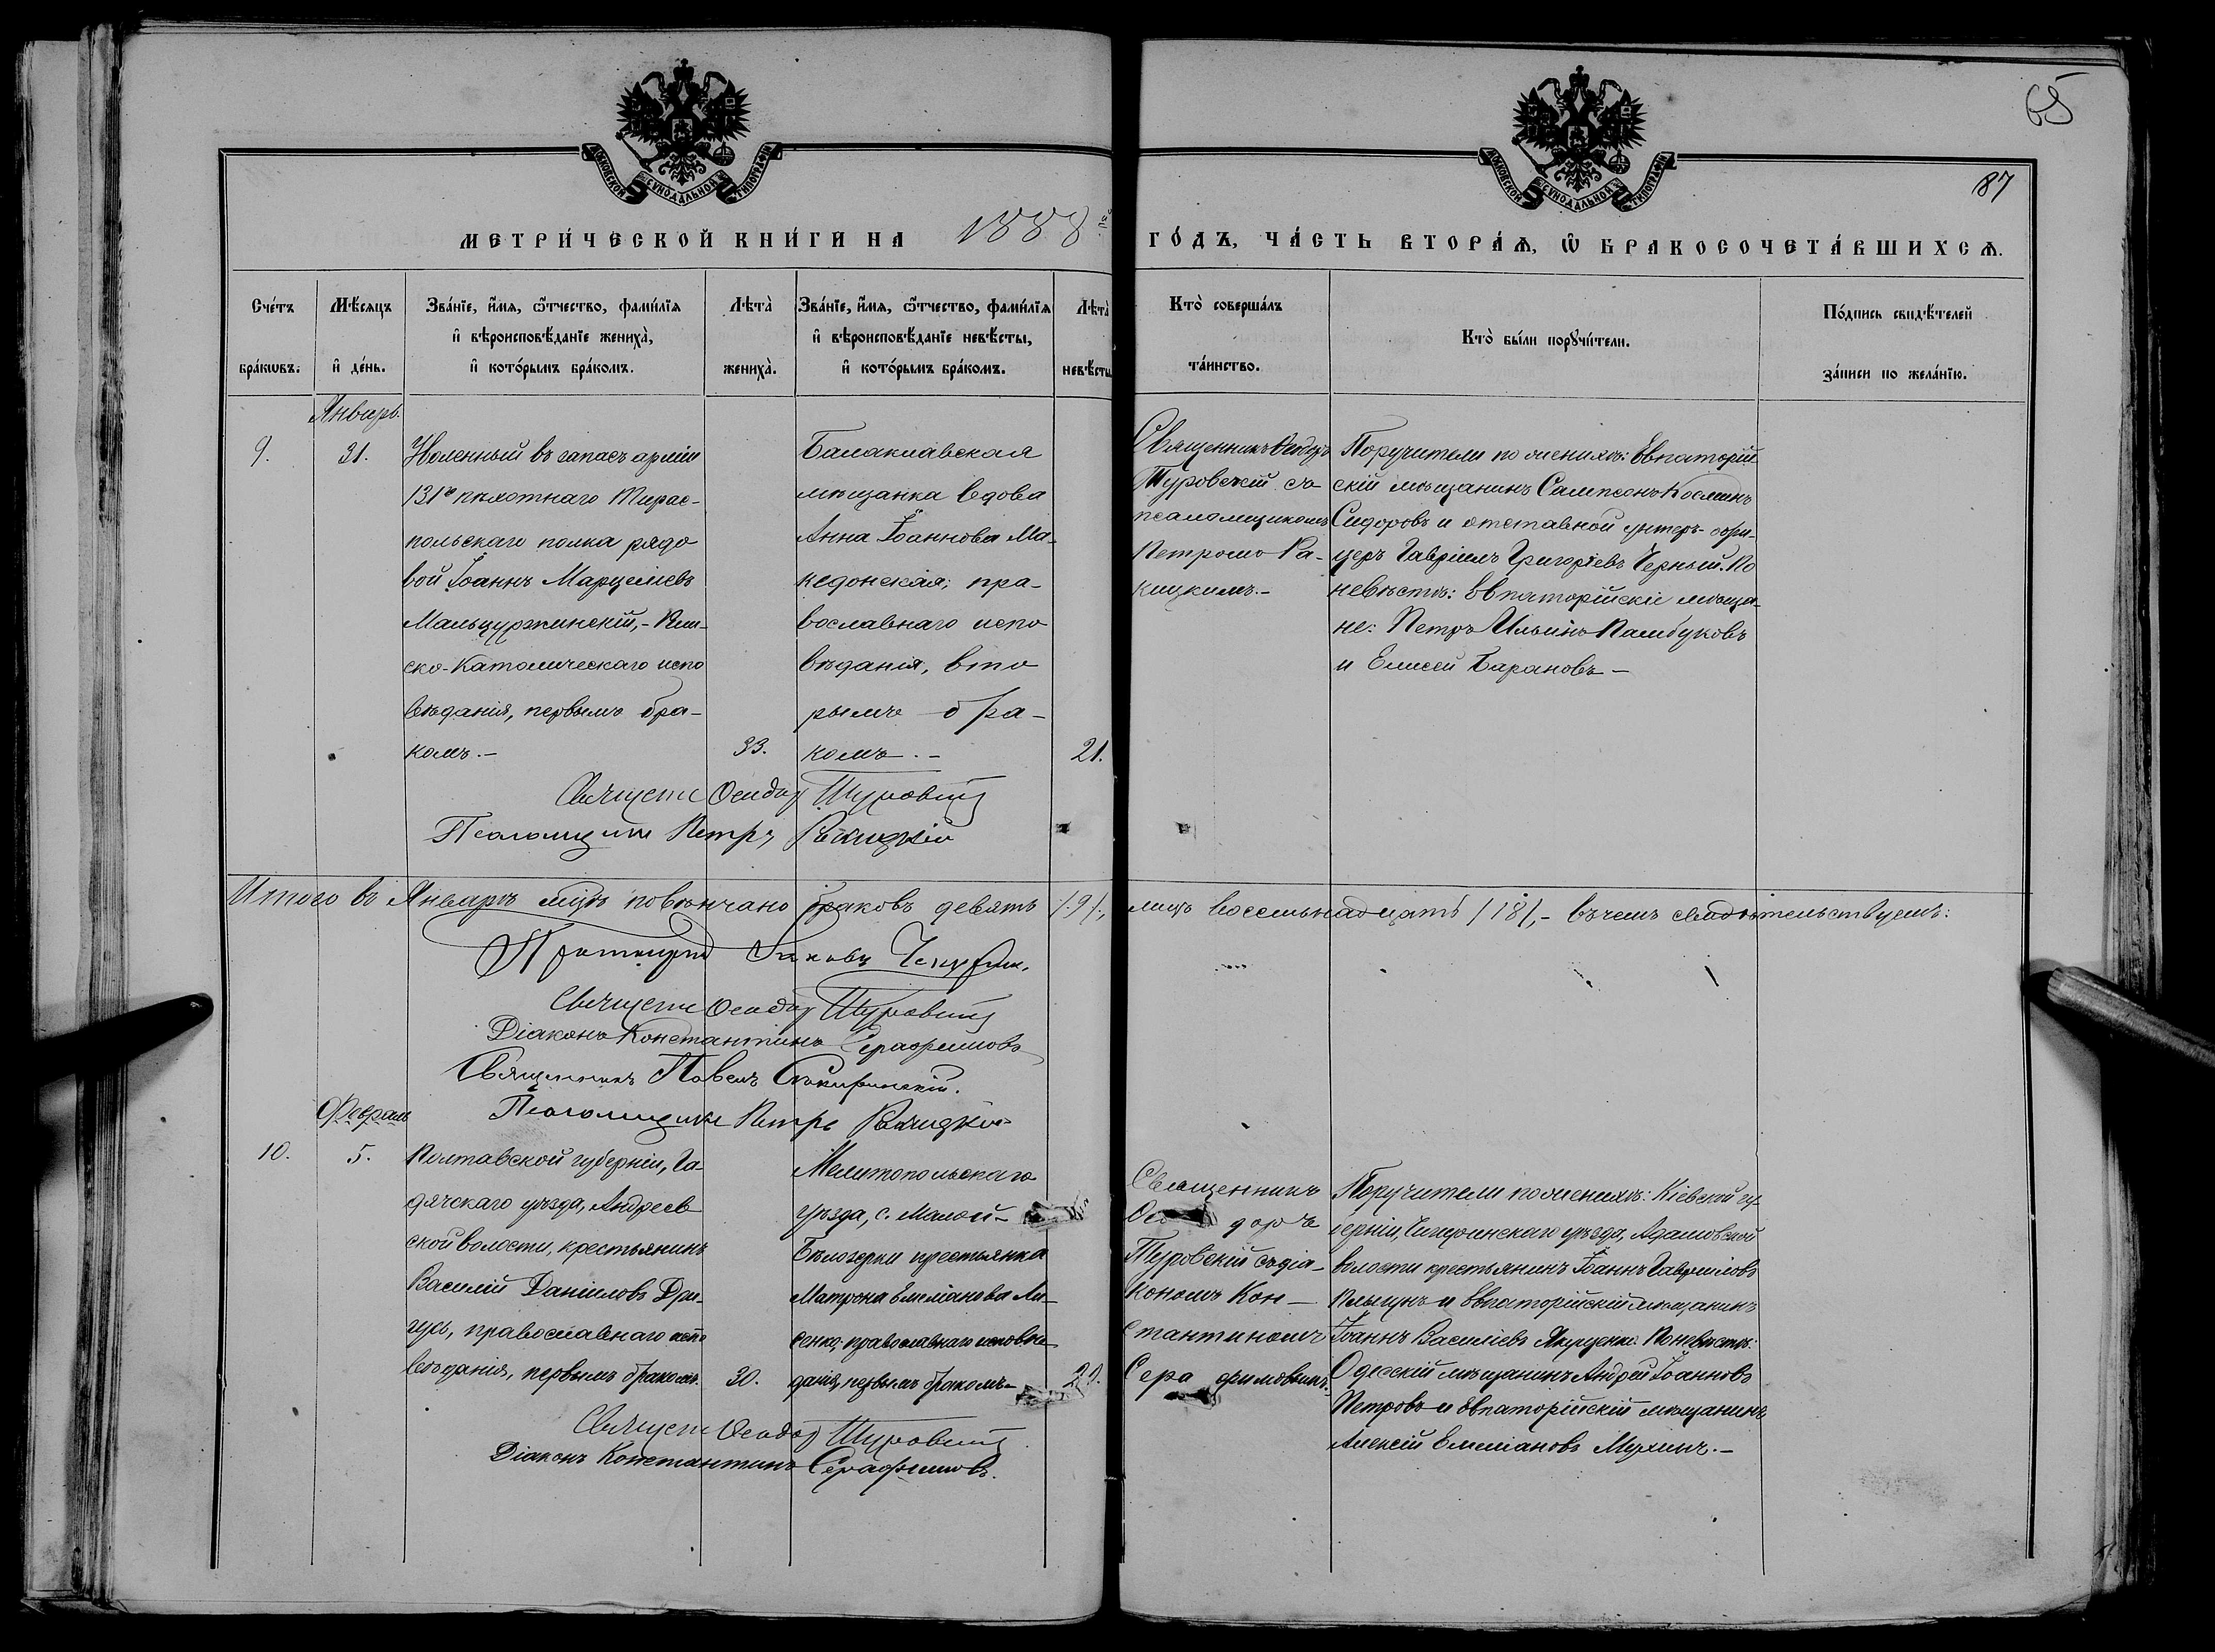 65
87
МОСКОВСКОЙ СѴНОДАЛЬНОЙ ТИПОГРАФІИ
МОСКОВСКОЙ СѴНОДАЛЬНОЙ ТИПОГРАФІИ
МЕТРИ́ЧЕСКОЙ КНИ́ГИ НА 1888
ГО́ДЪ, ЧА́СТЬ ВТОРА́Ѧ, Ѽ БРАКОСОЧЕТА́ВШИХСѦ.
Сче́тъ
бра́кѡвъ.
Мѣ́сяцъ
и҆ де́нь.
Зва́нїе, и҆́мя, ѻ҆́тчество, фами́лїя
и҆ вѣроисповѣ́данїе жениха̀,
и҆ кото́рымъ бра́комъ.
Лѣта̀
жениха̀.
Зва́нїе, и҆́мя, ѻ҆́тчество, фами́лїя
и҆ вѣроисповѣ́данїе невѣ́сты,
и҆ кото́рымъ бра́комъ.
Лѣта̀
невѣ́сты
Кто̀ соверша́лъ
та́инство.
Кто̀ бы́ли порꙋчи́тели.
По́дпись свидѣ́телей
за́писи по жела́нїю.
Январь.
9.
31.
Уволенный въ запасъ арміи
131го пѣхотнаго Тирас-
польскаго полка рядо
вой Іоаннъ Марцеліевъ
Мальцуржинскій,- Рим-
ско-Католическаго испо
вѣданія, первымъ бра-
комъ.-
33.
Балаклавская
мѣщанка вдова
Анна Іоаннова Ма-
кедонская; пра-
вославнаго испо
вѣданія, вто
рымъ бра-
комъ.-
21.
Священникъ Ѳеодоръ
Туровскій съ
псаломщикомъ
Петромъ Ра-
кицкимъ.-
Поручители по женихѣ: Евпаторій
скій мѣщанинъ Сампсонъ Косминъ
Сидоровъ и отставной унтеръ-офи-
церъ Гавріилъ Григоріевъ Черный. По
невѣстѣ: Евпаторійскіе мѣща-
не: Петръ Ильинъ Памбуковъ
и Елисей Барановъ-
Священн Ѳеодоръ Туровскій
Псаломщикъ Петръ Ракицкій
Итого въ Январѣ мцѣ повѣнчано браковъ девять /9/,
лицъ восемьнадцать /18/,- въ чемъ свидѣтельствуемъ:
Протоіерей Іаковъ
Священн Ѳеодоръ Туровскій
Діаконъ Константинъ Серафимовъ
Священникъ Павелъ
Псаломщикъ Петръ Ракицкій
Февраль
10.
5.
Полтавской губерніи, Га-
дячскаго уѣзда, Андреев
ской волости, крестьянинъ
Василій Даніиловъ Дри-
гусь, православнаго испо
вѣданія, первымъ бракомъ.
30.
Мелитопольскаго
уѣзда, с. Малой-
Бѣлозерки крестьянка
Матрона Емеліанова Ли-
сенко; православнаго исповѣ
данія, первымъ бракомъ-
Священникъ
Ѳеодоръ
Туровскій съ діа-
кономъ Кон-
стантиномъ
Серафимовымъ.
Поручители по женихѣ: Кіевской гу
берніи, Чигиринскаго уѣзда, Адамовской
волости крестьянинъ Іоаннъ Гавриловъ
и Евпаторійскій мѣщанинъ
Іоаннъ Василіевъ По невѣстѣ:
Одесскій мѣщанинъ Андрей Іоанновъ
Петровъ и Евпаторійскій мѣщанинъ
Алексій Емеліановъ Мухинъ.-
Священн Ѳеодоръ Туровскій
Діаконъ Константинъ Серафимовъ.